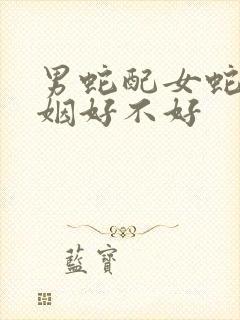 男蛇配女蛇
姻好不好
藍寶